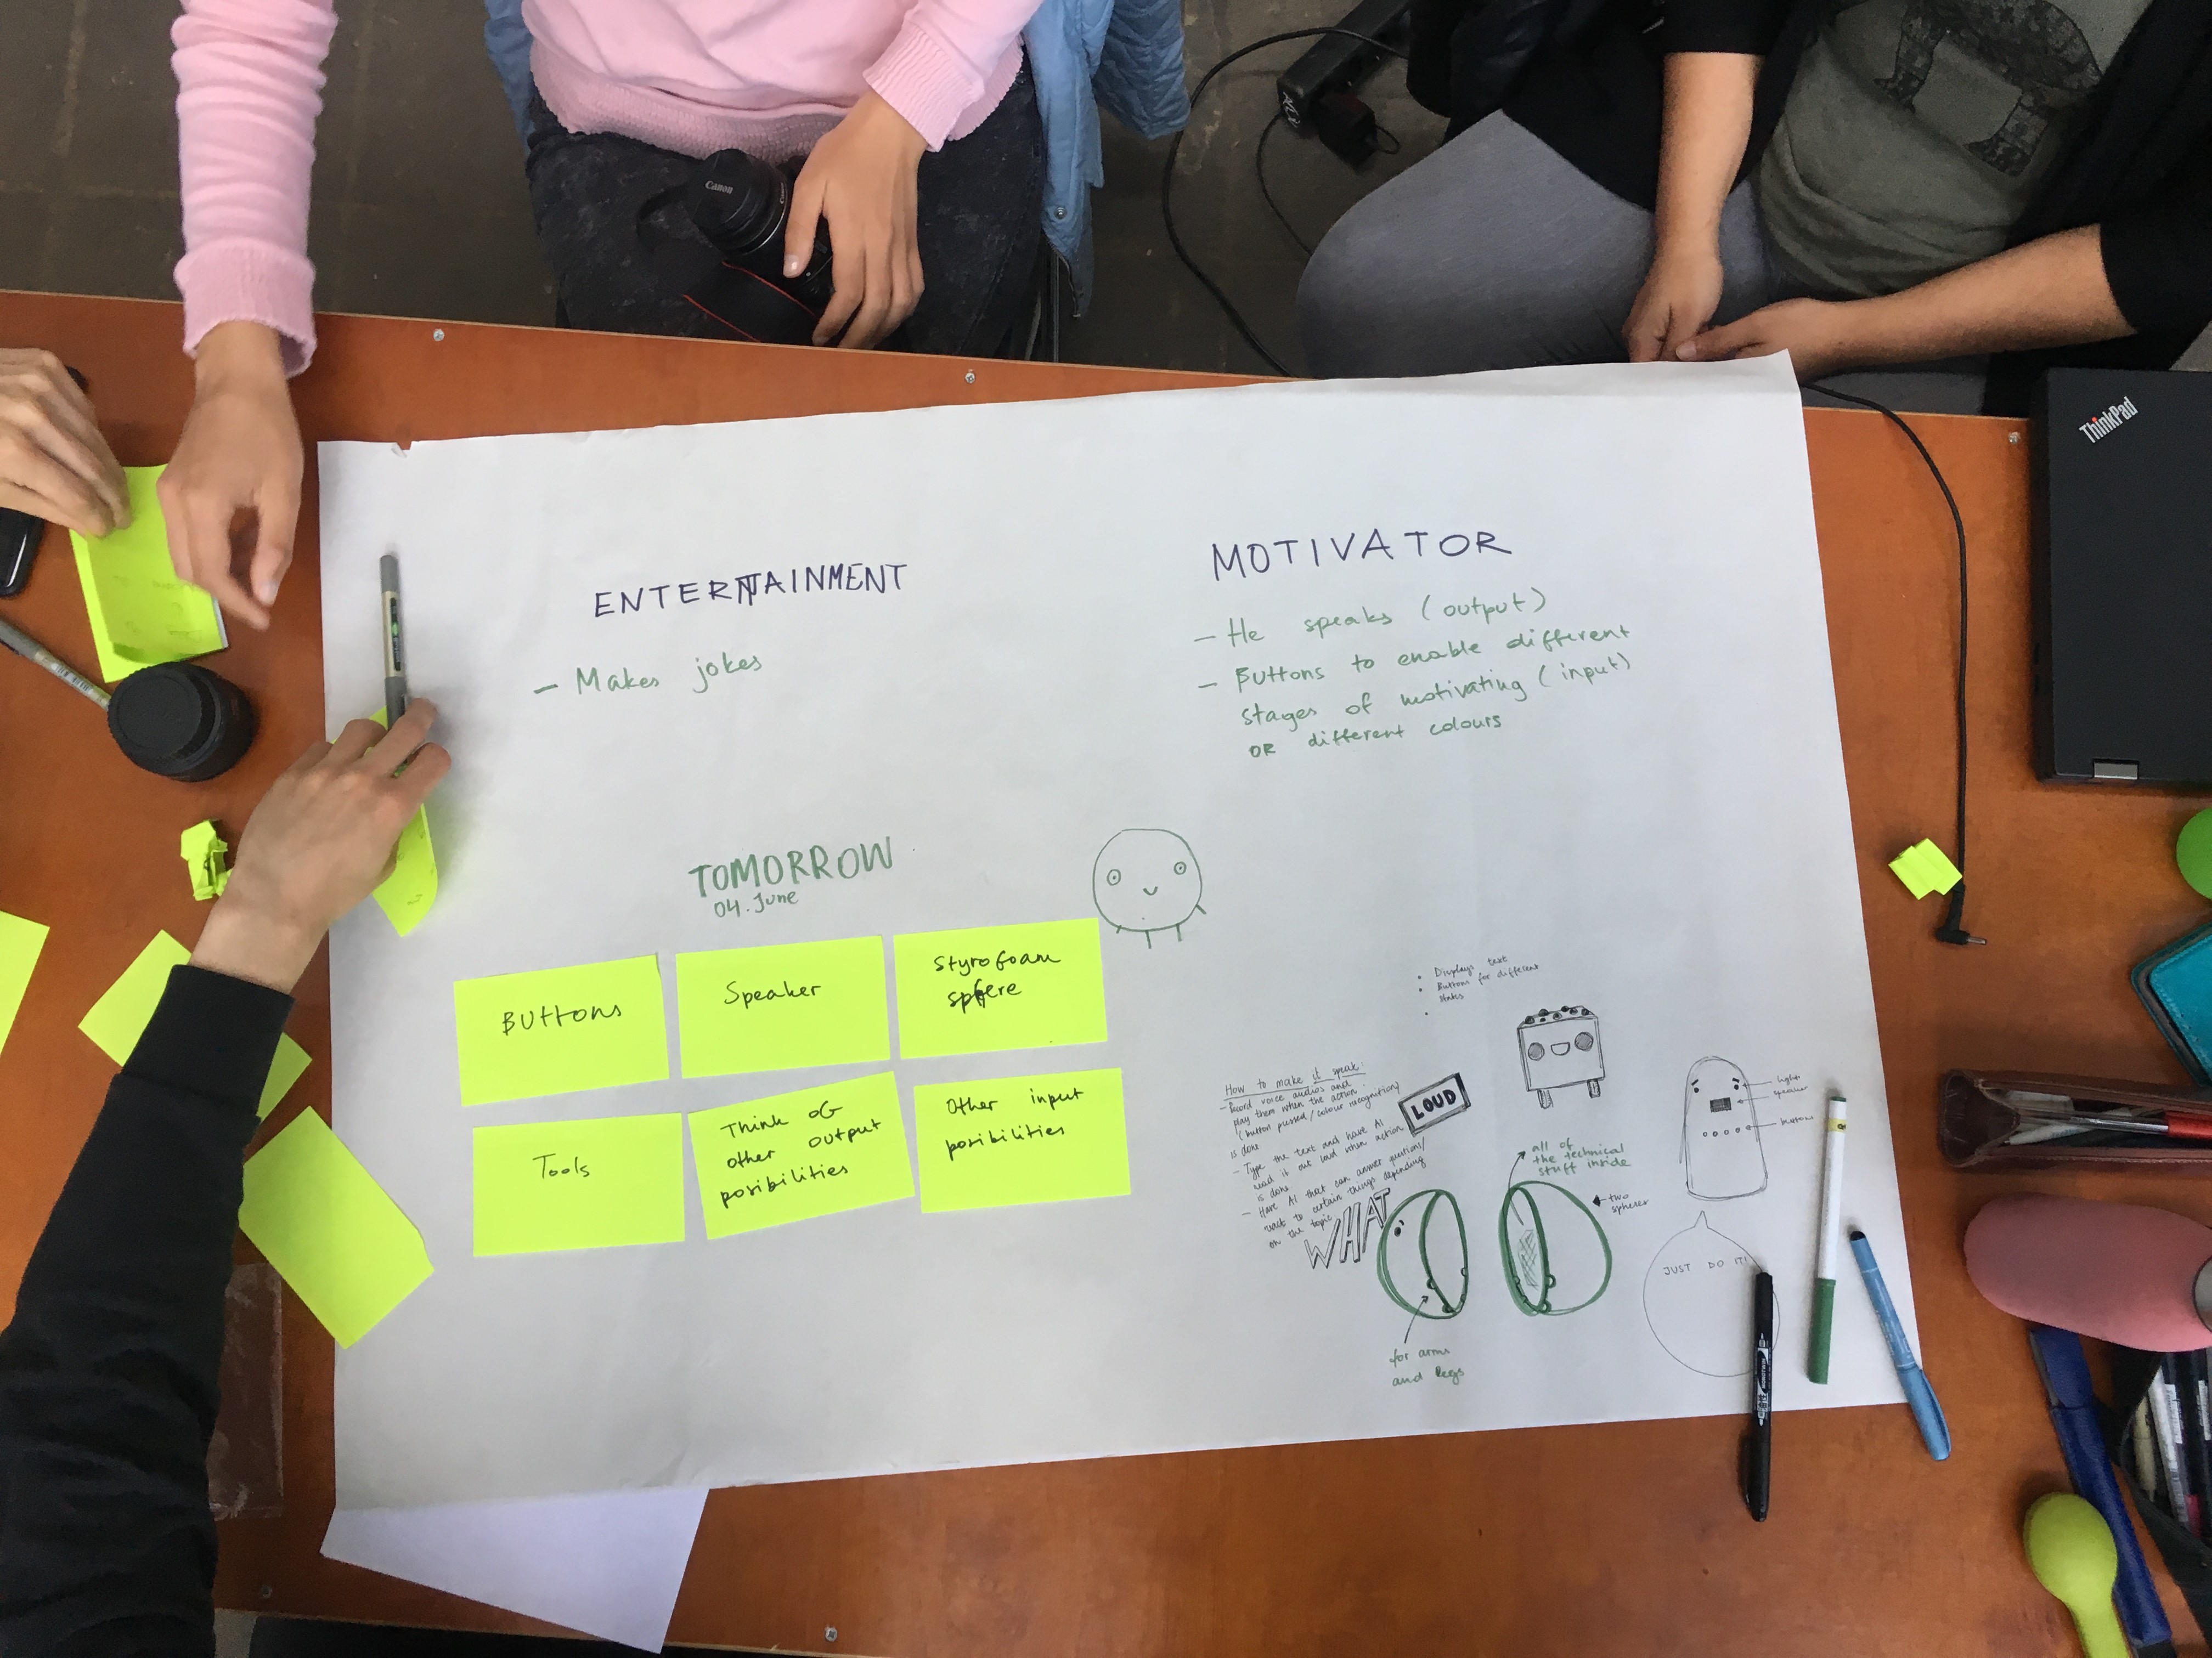 Canon
ThinkPad
ENTERTAINMENT
– Makes jokes
MOTIVATOR
– He speaks (output)
– Buttons to enable different
stages of motivating (input)
OR different colours
TOMORROW
04. June
Buttons
Speaker
Styrofoam
sphere
Tools
Think of
other output
posibilities
Other input
posibilities
• Displays text
• Buttons for different
states
•
How to make it speak:
- Record voice audios and
play them when the action
(button pressed / colour recognition)
is done
- Type the text and have AI
read it out loud when action
is done
- Have AI that can answer questions/
react to certain things depending
on the topic
LOUD
WHAT
all of
the technical
stuff inside
two
spheres
for arms
and legs
light
speaker
buttons
JUST DO IT!